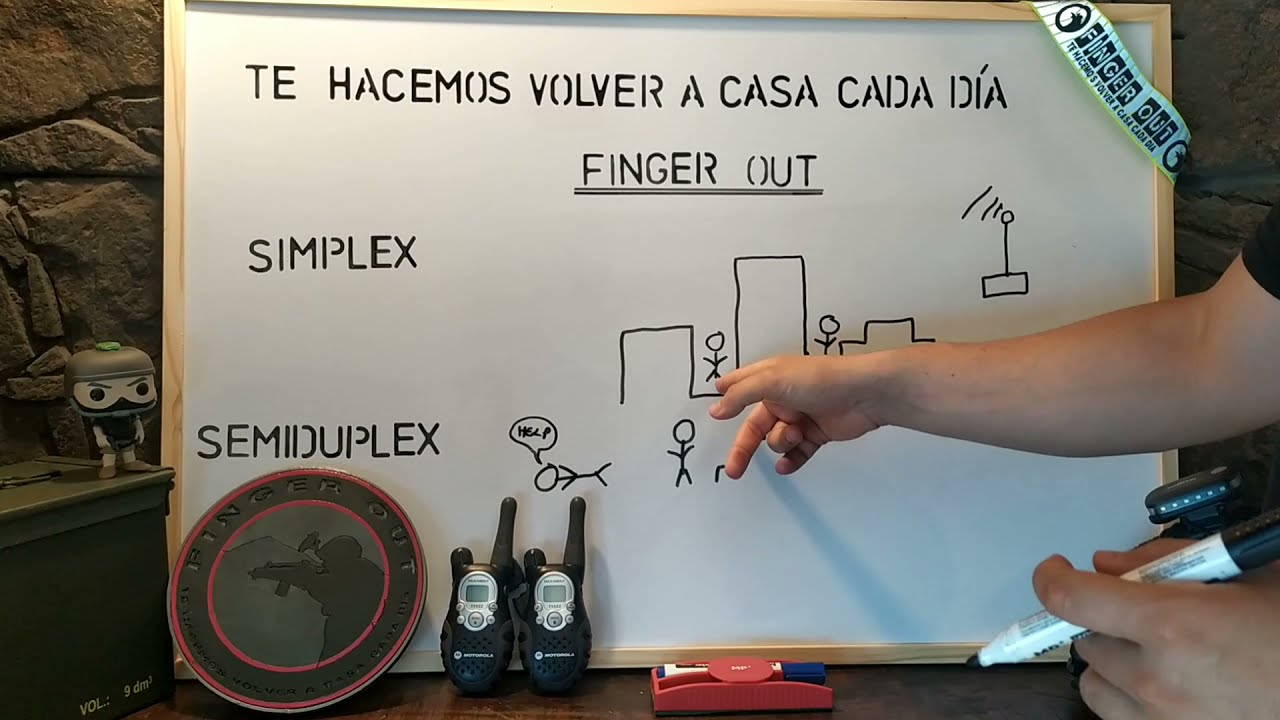 TE HACEMOS VOLVER A CASA CADA DÍA
FINGER OUT
SIMPLEX
SEMIDUPLEX
HELP
FINGER OUT
TE HACEMOS VOLVER A CASA CADA DÍA
FINGER OUT
TE HACEMOS VOLVER A CASA CADA DÍA
MOTOROLA
MOTOROLA
VOL.: 9 dm³